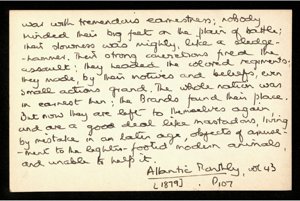 was with tremendous earnestness; nobody
minded their big feet on the plain of battle;
their slowness was mighty, like a sledge-
-hammer, their strong convictions fired the
assault: they headed the colored regiments;
they made, by their natures and beliefs, even
small actions grand. The whole nation was
in earnest then; the Brandls found their place.
But now they are left to themselves again
and are a good deal like mastodons, living
by mistake in an later age, objects of amuse-
-ment to the lighter-footed modern animals,
and unable to help it.
Atlantic Monthly, vol 43
[1879]. P107